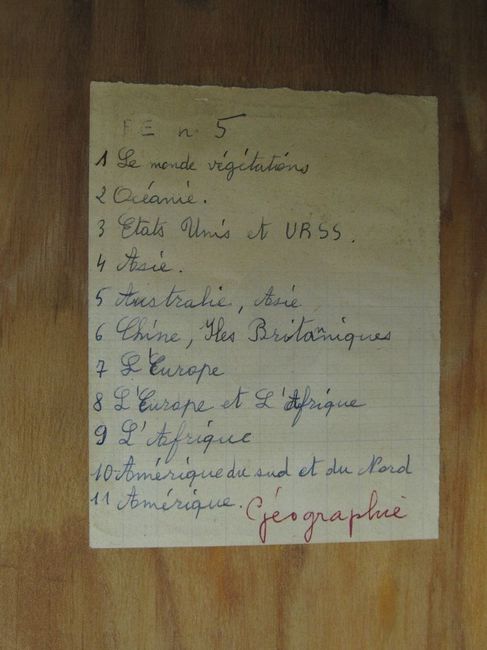 F E n. 5
1 Le monde végétations
2 Océanie.
3 Etats Unis et URSS.
4 Asie.
5 Australie, Asie
6 Chine, Iles Britanniques
7 L'Europe
8 L'Europe et L'Afrique
9 L'Afrique
10 Amérique du sud et du Nord
11 Amérique.
Géographie